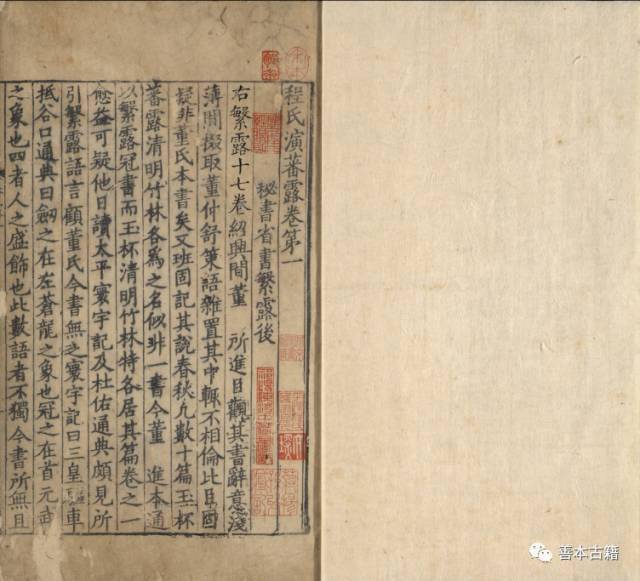 程氏演蕃露卷第一
秘書省書繁露後
右繁露十七卷紹興間董 所進臣觀其書辭意淺
薄間掇取董仲舒策語雜置其中輒不相倫比臣固
疑非董氏本書矣又班固記其說春秋凡數十篇玉杯
蕃露清明竹林各為之名似非一書今董 進本通
以繁露冠書而玉杯清明竹林特各居其篇卷之一
愈益可疑他日讀太平寰宇記及杜佑通典頗見所
引繁露語言顧董氏今書無之寰宇記曰三皇 車
抵谷口通典曰劒之在左蒼龍之象也冠之在首元武
之象也四者人之盛飾也此數語者不獨今書所無且
善本古籍